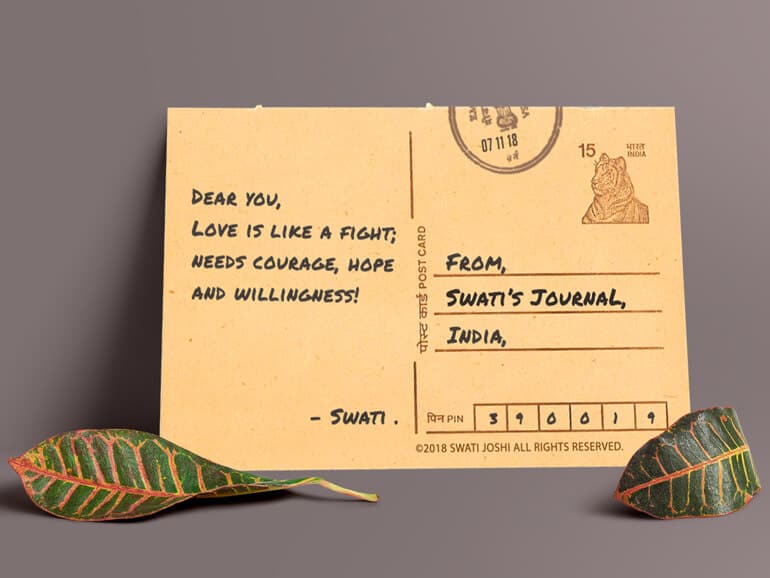 DEAR YOU,
LOVE IS LIKE A FIGHT;
NEEDS COURAGE, HOPE
AND WILLINGNESS!
- SWATI .
07 11 18
15 भारत
INDIA
पोस्ट कार्ड POST CARD
FROM,
SWATI'S JOURNAL,
INDIA,
पिन PIN 3 9 0 0 1 9
©2018 SWATI JOSHI ALL RIGHTS RESERVED.